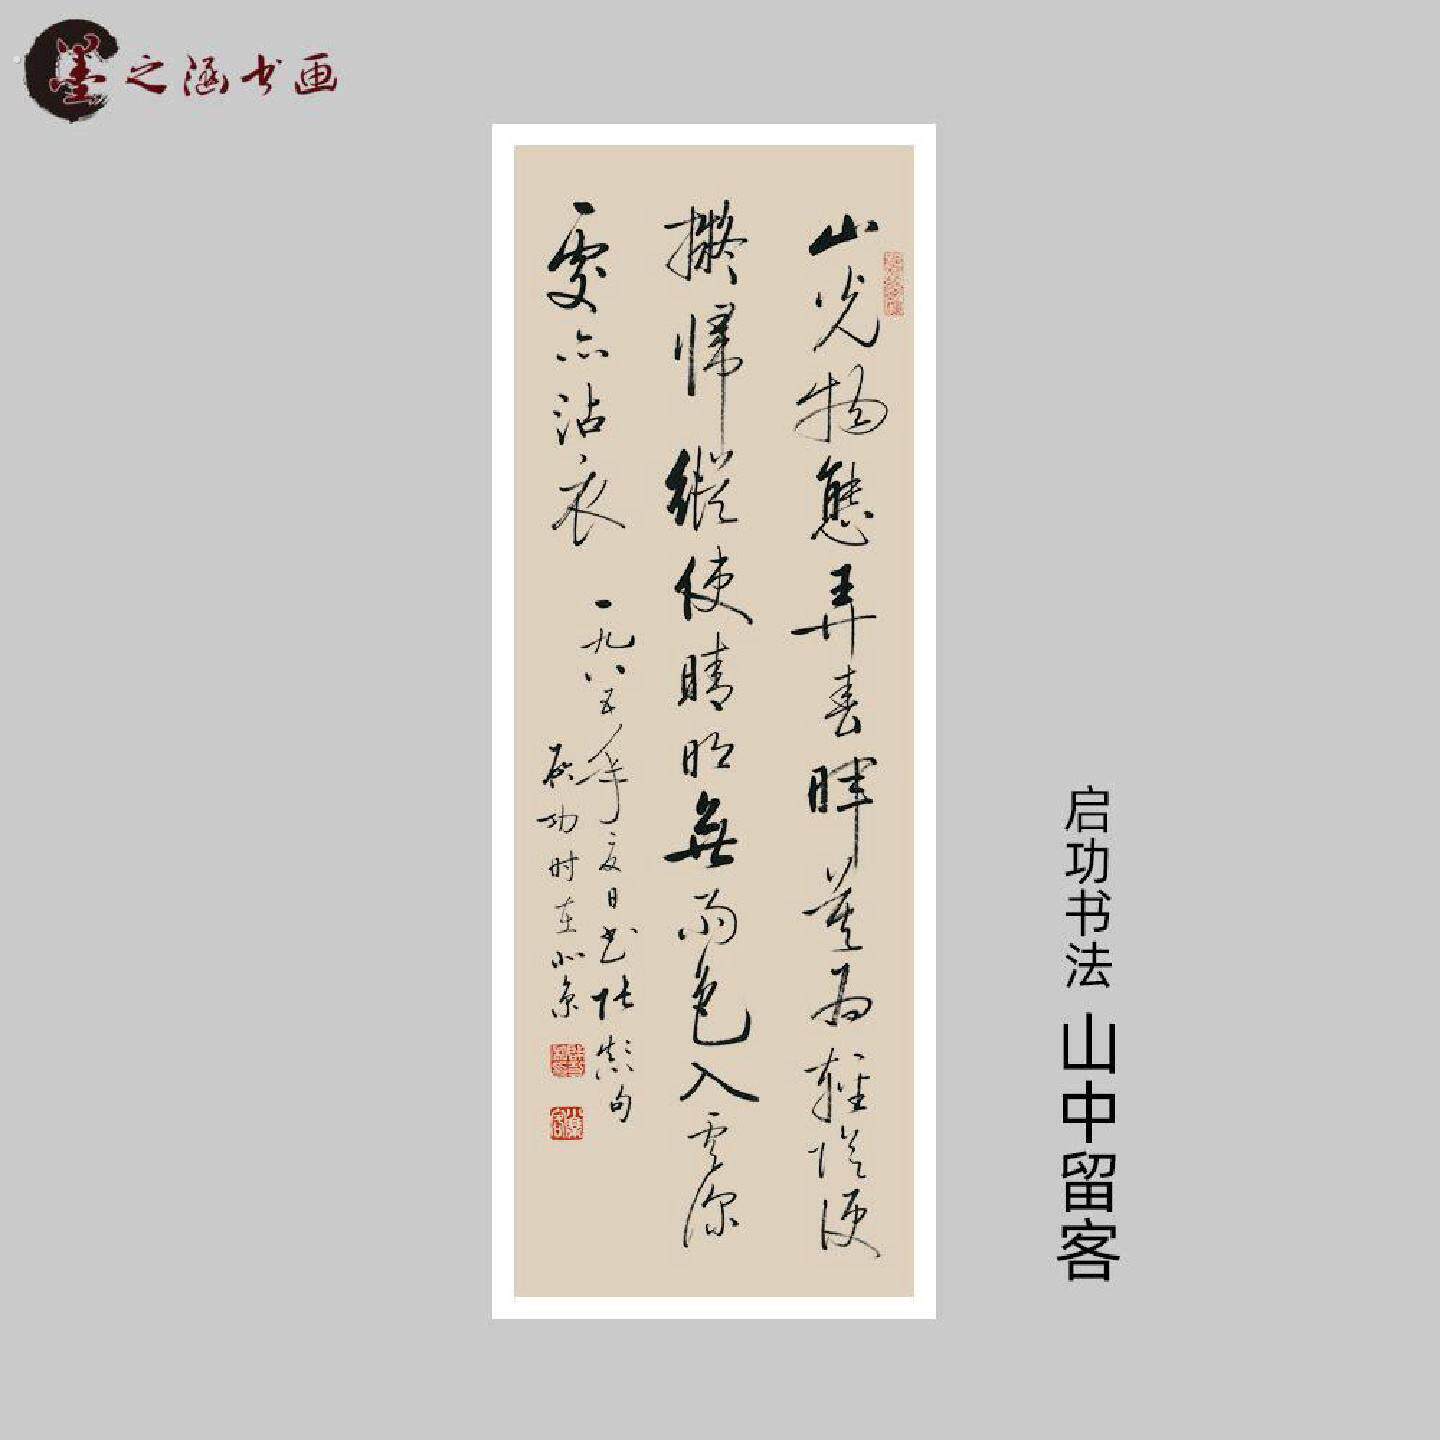 墨之涵书画
山光物態弄春暉莫为輕陰便
擬歸縱使晴明無雨色入雲深
處亦沾衣
一九八五年夏日书張顛句
啟功时在北京
启功书法 山中留客